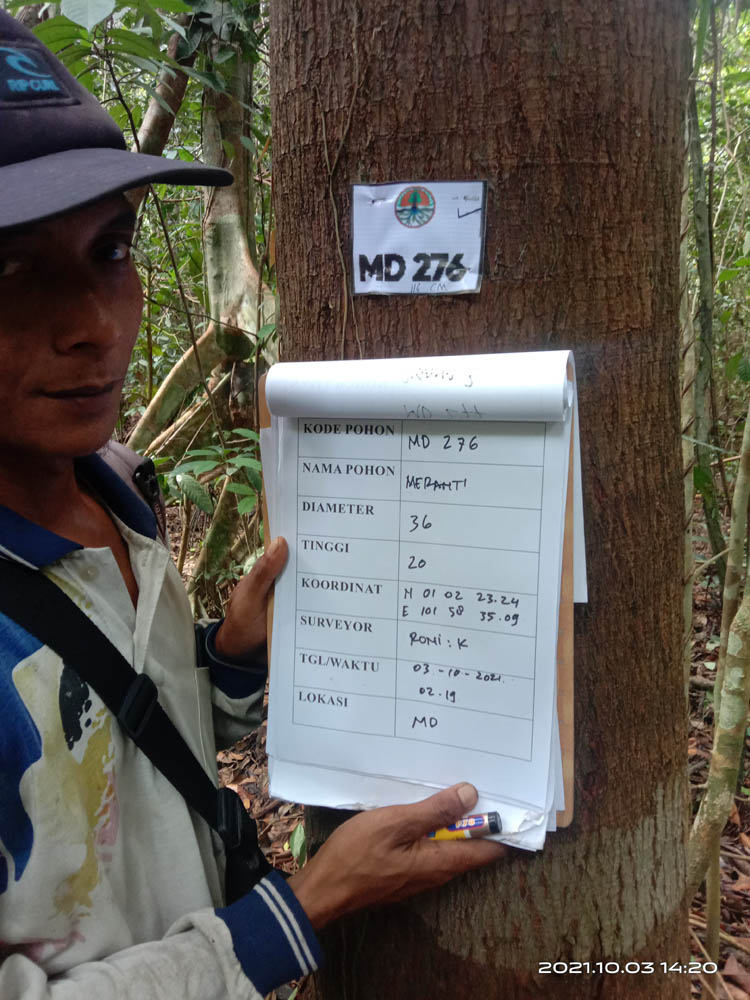 RIP CURL
MD 276
116 CM
KODE POHON MD 276
NAMA POHON MERANTI
DIAMETER 36
TINGGI 20
KOORDINAT N 01 02 23.24
E 101 58 35.09
SURVEYOR RONI : K
TGL/WAKTU 03 - 10 - 2021.
02.19
LOKASI MD
2021.10.03 14:20